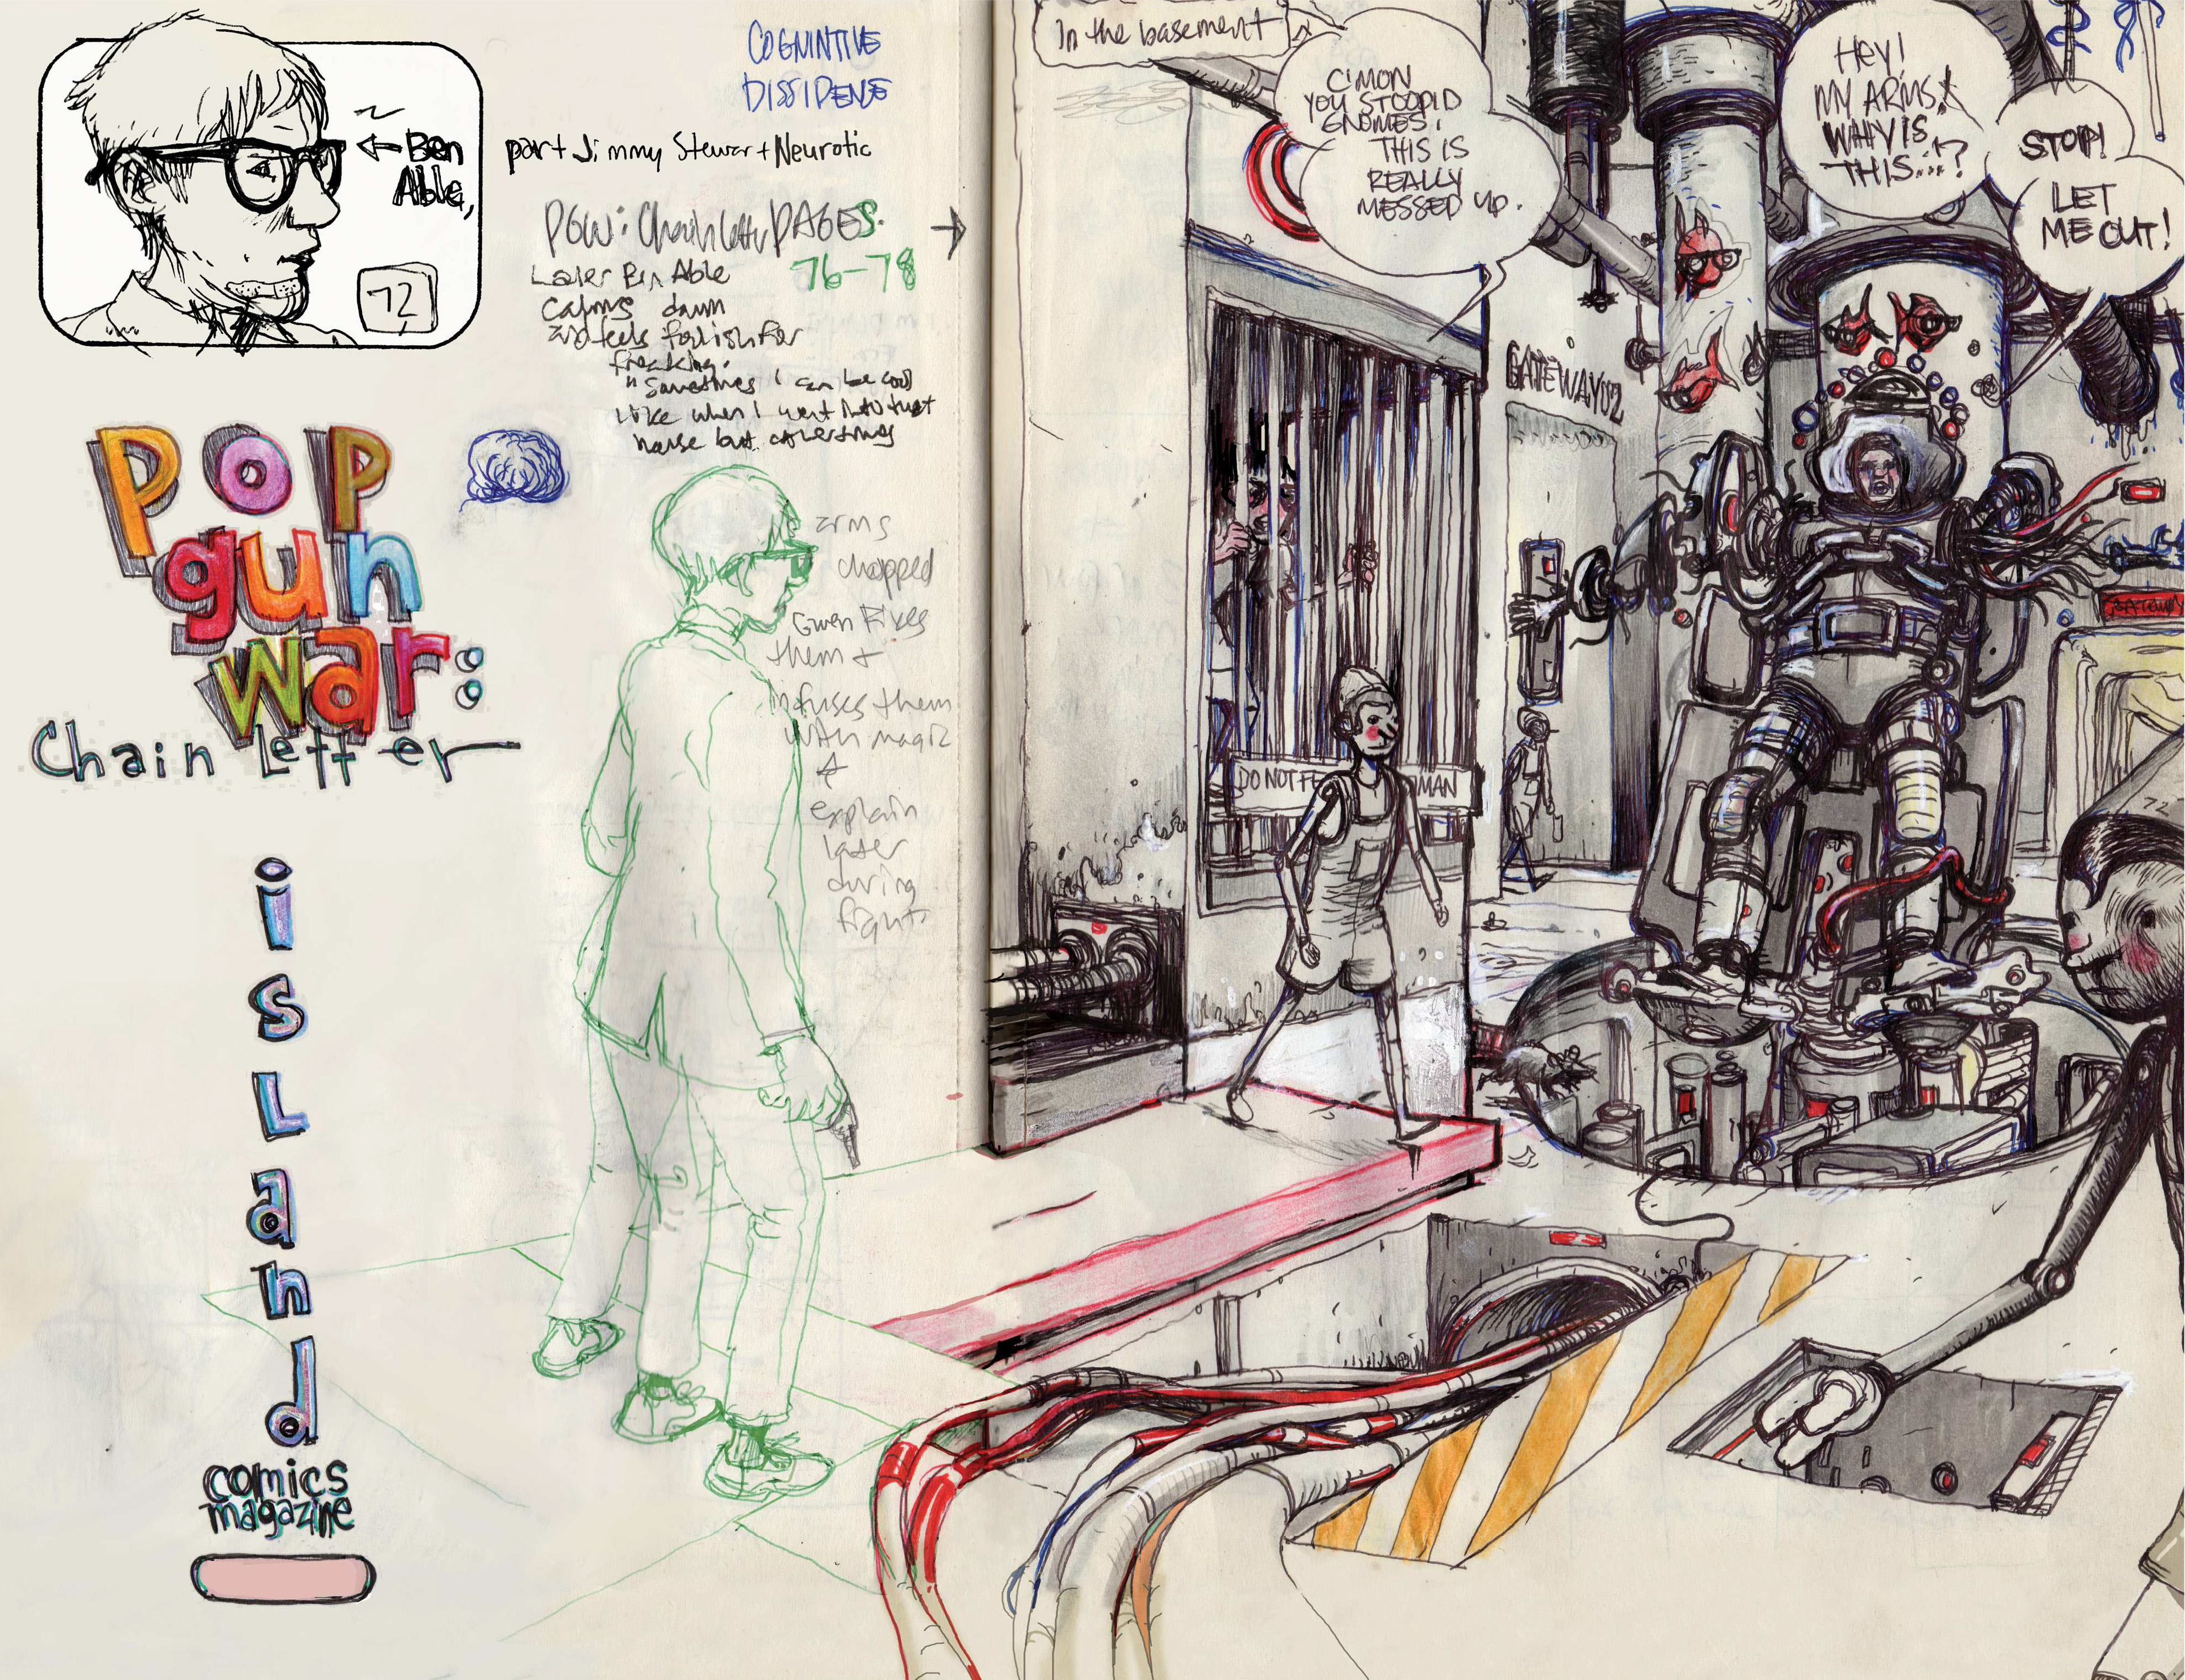 ← Ben
Able,
72
COGNINTIVE
DISSIDENSE
part Jimmy Stewart Neurotic
PGW: Chain letter PAGES.
76-78
Later Ben Able
Calms down
and feels foolish for
freaking.
"Sometimes I can be cool
like when I went into that
house but other times
Pop
gun
war:
Chain Letter
isLand
comics
magazine
arms
chopped
Gwen Fixes
them +
infuses them
with magic
&
explain
later
during
fight.
In the basement
C'MON
YOU STOOPID
GNOMES,
THIS IS
REALLY
MESSED UP.
HEY!
MY ARMS!
WHY IS
THIS...!?
STOP!
LET
ME OUT!
GATEWAY02
DO NOT FE
MAN
GATEWAY
72